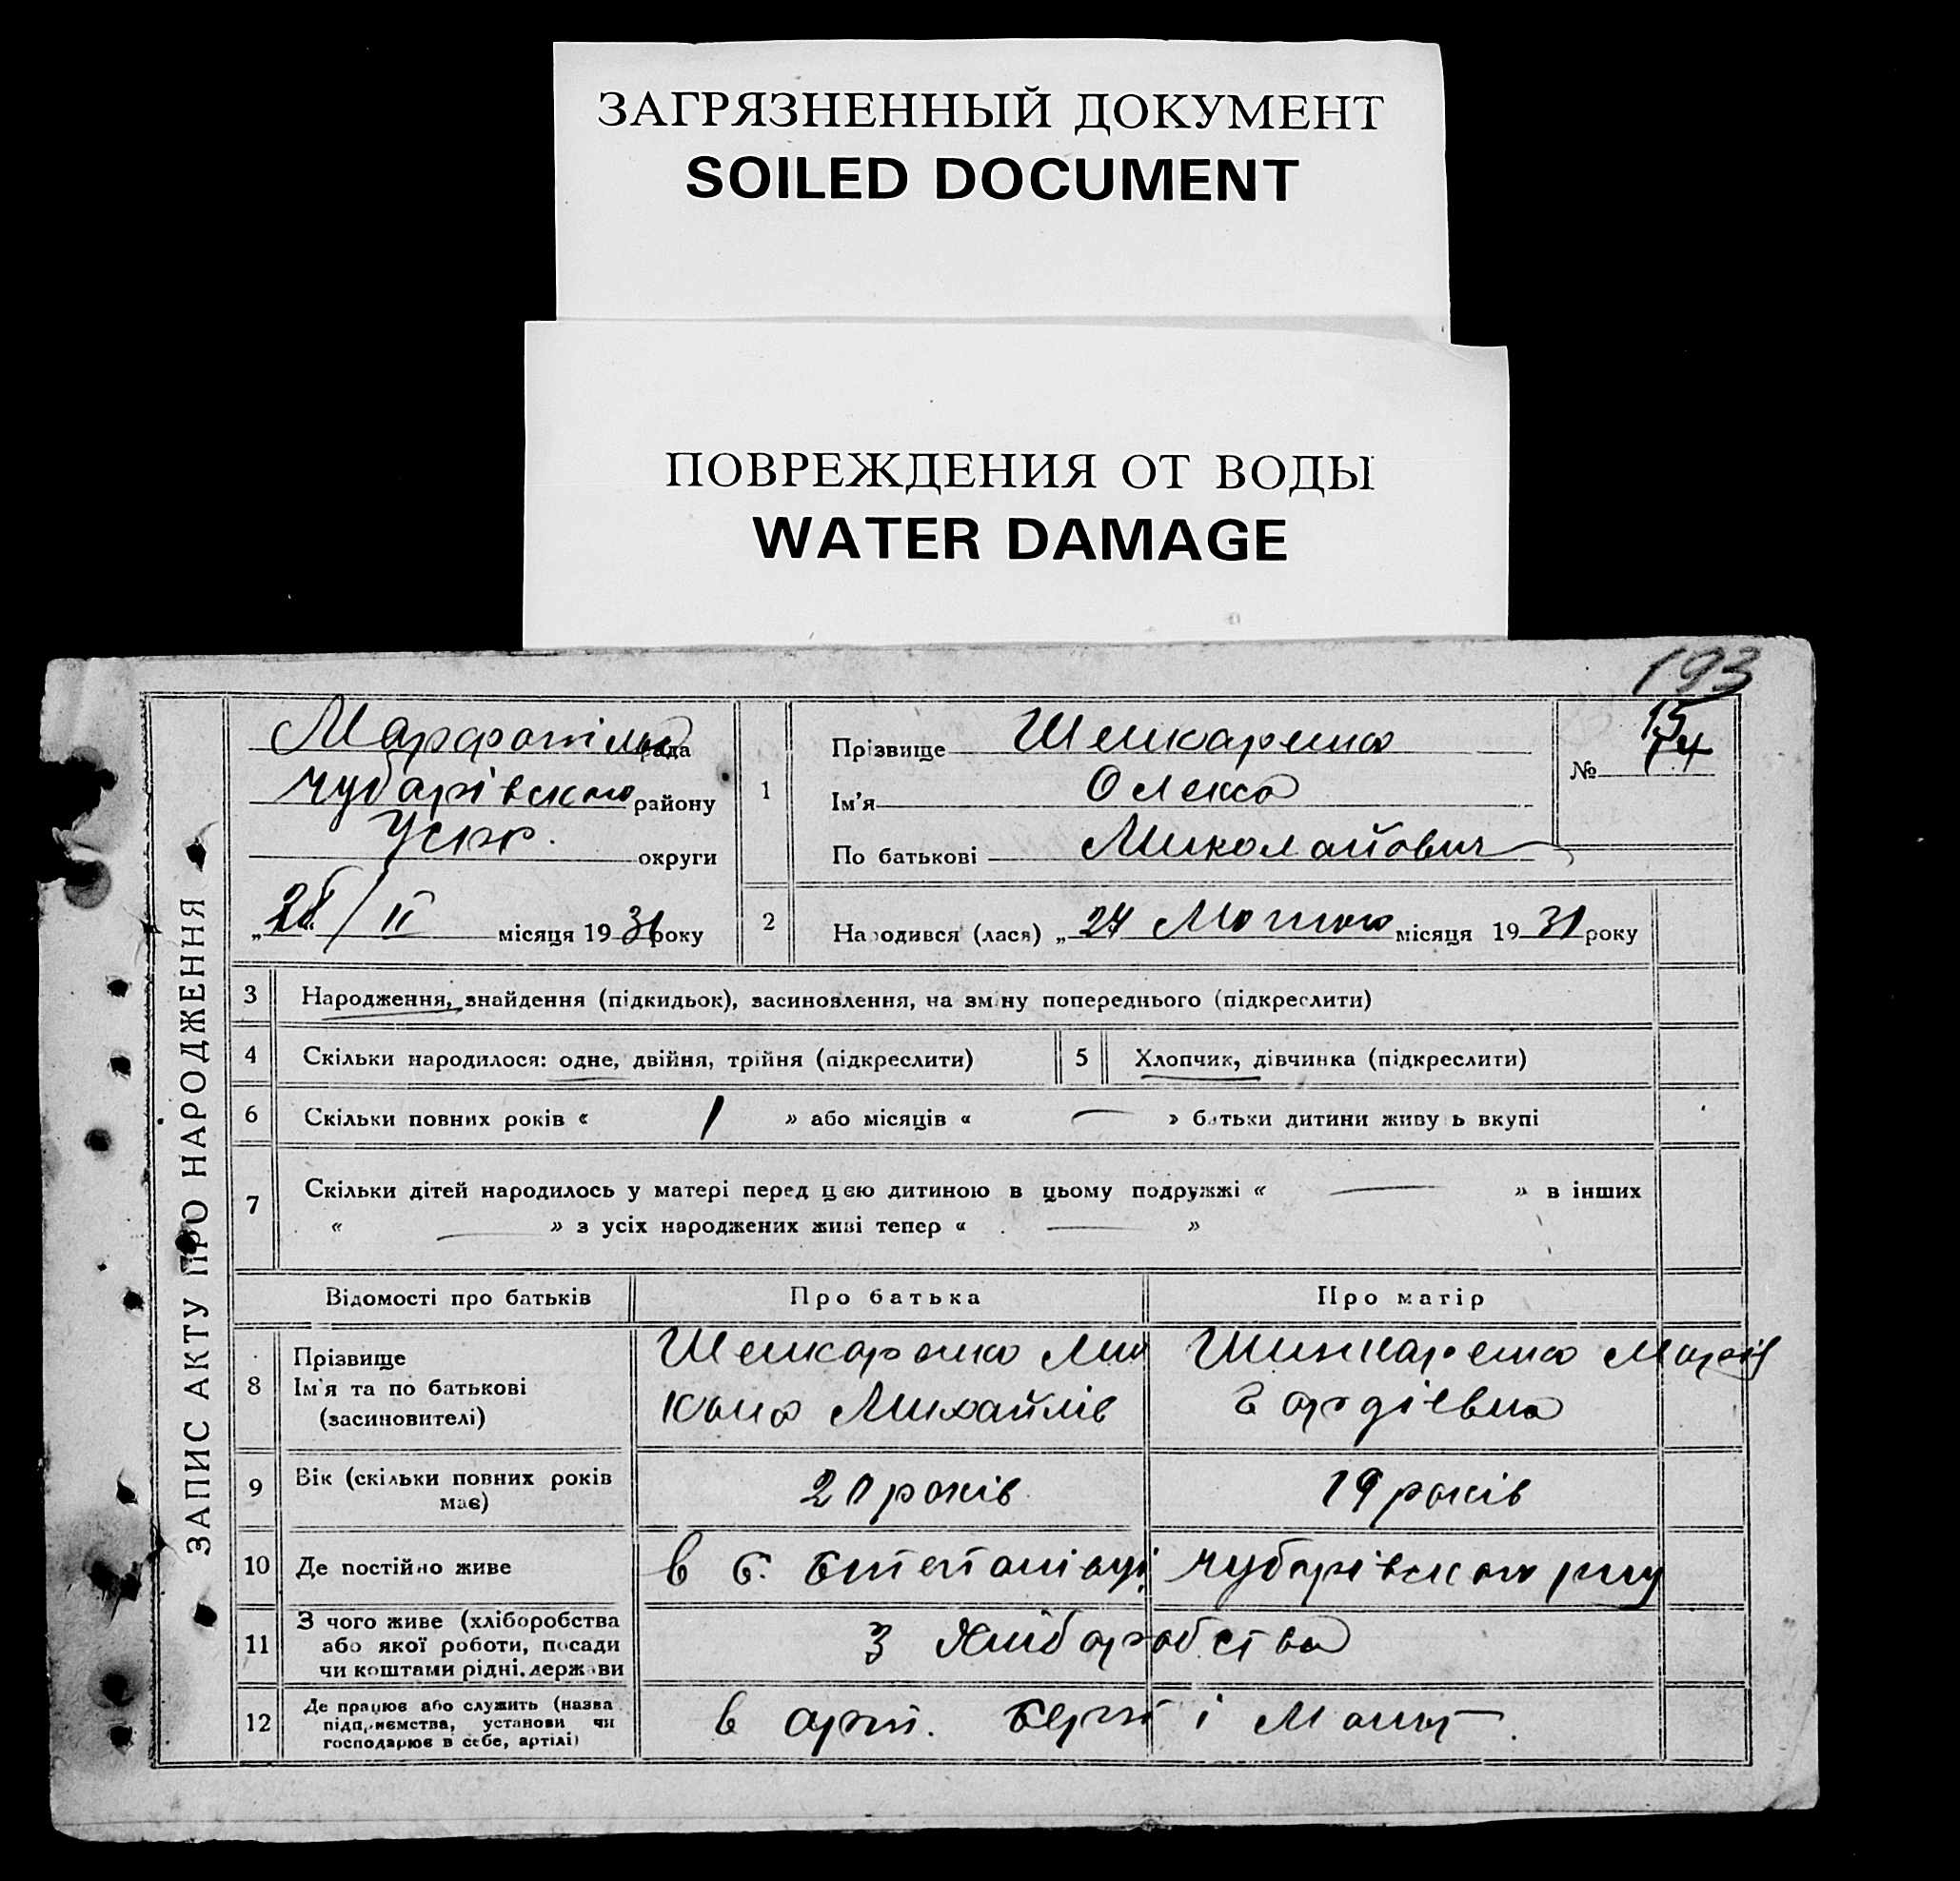 ЗАГРЯЗНЕННЫЙ ДОКУМЕНТ
SOILED DOCUMENT
ПОВРЕЖДЕНИЯ ОТ ВОДЫ
WATER DAMAGE
193
ЗАПИС АКТУ ПРО НАРОДЖЕННЯ
рада
Чубарівского району
УСРР. округи
„28“/II місяця 1931 року
1
Прізвище Шенкаренко
Ім'я Олекса
По батькові Миколайович
№ 15
2 Народився (лася) „27 Лютого місяця 1931 року
3 Народження, знайдення (підкидьок), засиновлення, на зміну попереднього (підкреслити)
4 Скільки народилося: одне, двійня, трійня (підкреслити) 5 Хлопчик, дівчинка (підкреслити)
6 Скільки повних років « 1 » або місяців « — » батьки дитини живуть вкупі
7 Скільки дітей народилось у матері перед цією дитиною в цьому подружжі « — » в інших
« — » з усіх народжених живі тепер « — »
Відомості про батьків Про батька Про матір
8 Прізвище
Ім'я та по батькові
(засиновителі)
Шенкаренко Ми
кола Михайлів
Шинкаренко Марія
Гордіевна
9 Вік (скільки повних років
має)
20 років 19 років
10 Де постійно живе в с. Степанівці Чубарівского р-ну
11 З чого живе (хліборобства
або якої роботи, посади
чи коштами рідні, держави
З Хліборобства
12 Де працює або служить (назва
підприємства, установи чи
господарює в себе, артілі)
в арт. Серп і Молот.